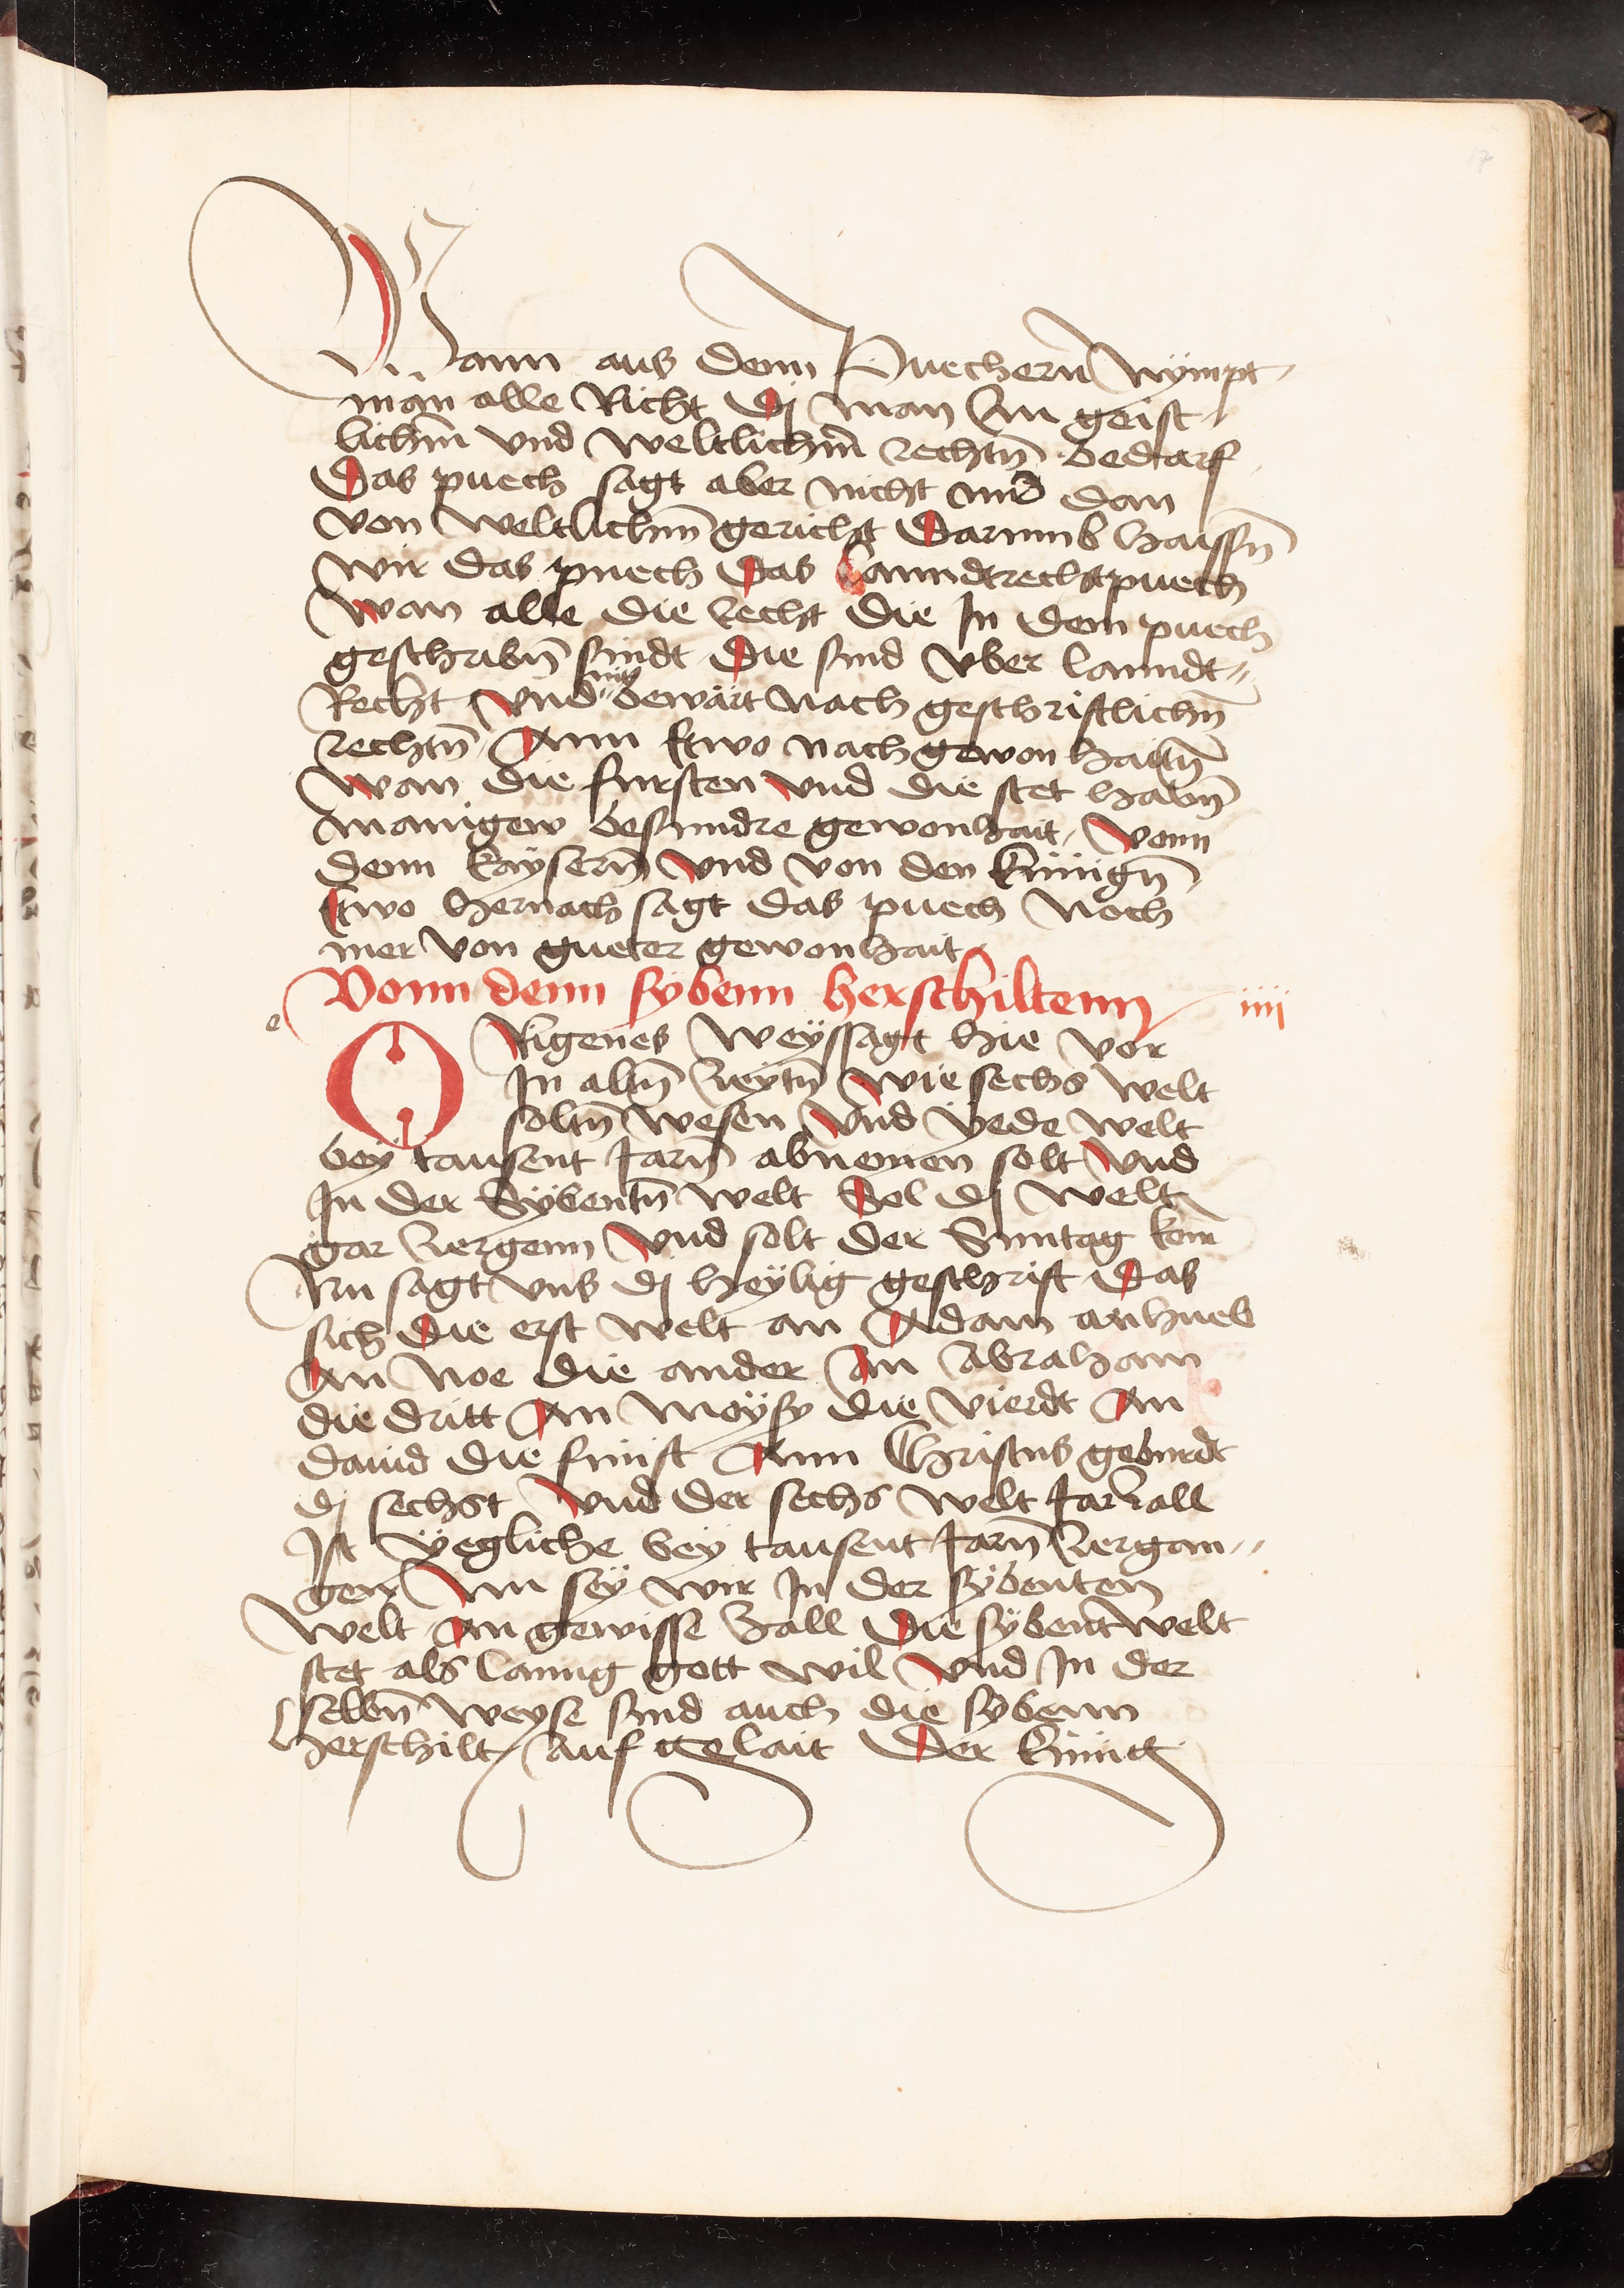 Wann aus denn Puechernn Nympt
man alle Richt Dj man An geist
lichm̄ vnd weltlichm̄ rechtn̄ bedarf
Das puech sagt aber nicht nur dan
von weltlichm̄ gericht Darumb haissn̄
wir das puech Das Lanndtrechtpuech
Wan alle die recht die In dem puech
geschribn̄ sindt Die sind vber lanndt„
Recht Vnd sind bewärt nach geschriftlichn̄
rechtn̄ Ann Etwo nach gewonhaitn̄
Wan die fursten Vnd die stet habn̄
manigew besundre gewonhait, Vonn
denn kaysern̄ Vnd von den kunign̄
Etwo hernach sagt das puech Noch
mer Von gueter gewonhait
Vonn denn sybenn herschiltenn iiii
e
ORigenes Weyssagt hie vor
In altn̄ Zeytn̄ Wie sechs welt
soltn̄ wesen Vnd yede welt
bey tausent Jarn̄ abnemen solt Vnd
In der Sybentn̄ welt Sol dj welt
gar Zergenn Vnd solt der Suntag kom̄
Nu sagt vns dj heylig geschrift Das
sich Die erst welt an Adam anhueb
An Noe die ander An Abraham
die dritt An Moysy die vierdt An
dauid die funft Ann Christus geburdt
dj sechst Vnd der sechs welt Jarzall
Ist yegliche bey tausent Jarn̄ Zergan„
gen Nu sey wir In der sybenten
welt An gewisse Zall Die sybent welt
stet als lanng gott wil Vnd In der
selbn̄ weyse sind auch die sybenn
Herschilt Auf gelait Der kunig